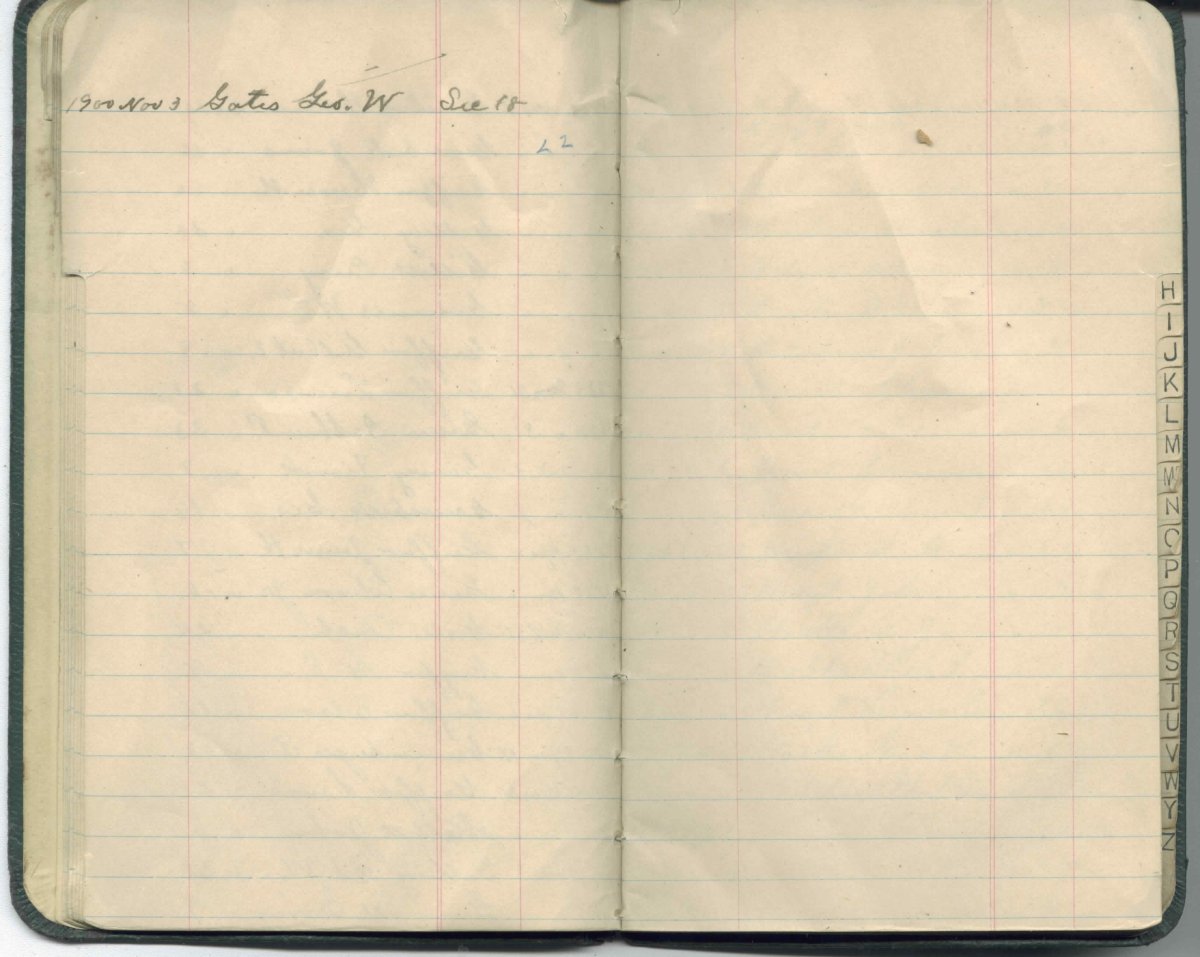 1900 Nov 3 Gates Geo. W Sec 18
22
H
I
J
K
L
M
Mc
N
O
P
Q
R
S
T
U
V
W
Y
Z